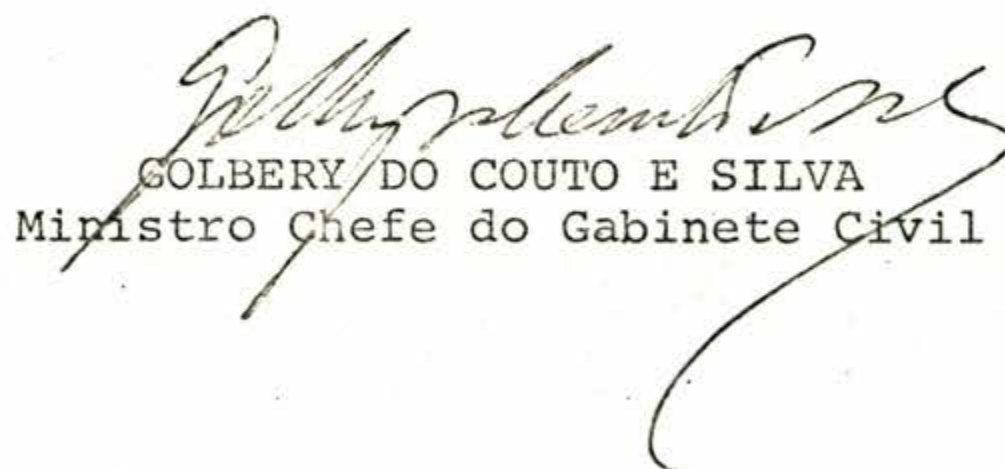 GOLBERY DO COUTO E SILVA
Ministro Chefe do Gabinete Civil